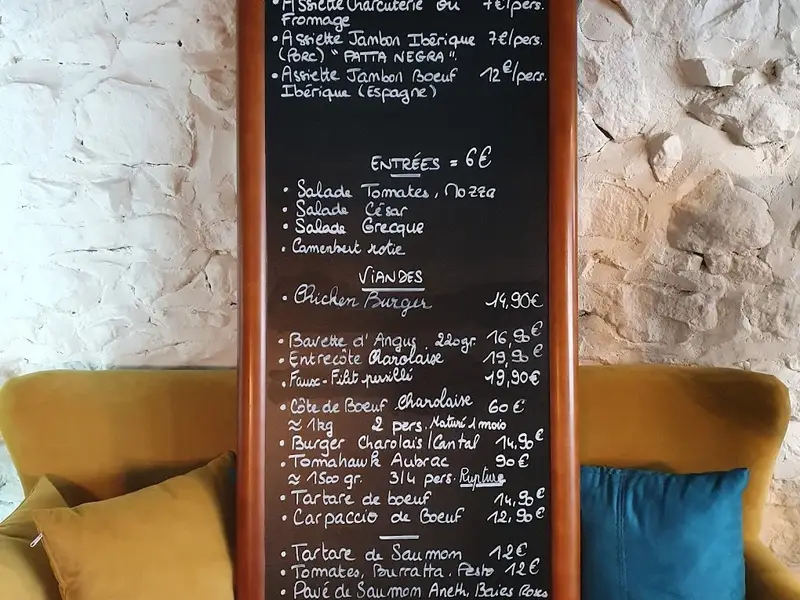 • Assiette Charcuterie ou 7€/pers.
Fromage
• Assiette Jambon Ibérique 7€/pers.
(Porc) "PATTA NEGRA".
• Assiette Jambon Boeuf 12€/pers.
Ibérique (Espagne)
ENTRÉES = 6€
• Salade Tomates, Mozza
• Salade César
• Salade Grecque
• Camembert rotie
VIANDES
• Chicken Burger 14,90€
• Bavette d'Angus 220gr. 16,90€
• Entrecôte Charolaise 19,90€
• Faux-Filet persillé 19,90€
• Côte de Boeuf Charolaise 60€
≈ 1kg 2 pers. Maturé 1 mois
• Burger Charolais/Cantal 14,90€
• Tomahawk Aubrac 90€
≈ 1500 gr. 3/4 pers. Rupture
• Tartare de boeuf 14,90€
• Carpaccio de Boeuf 12,90€
• Tartare de Saumon 12€
• Tomates, Burratta, Pesto 12€
• Pavé de Saumon Aneth, Baies Roses